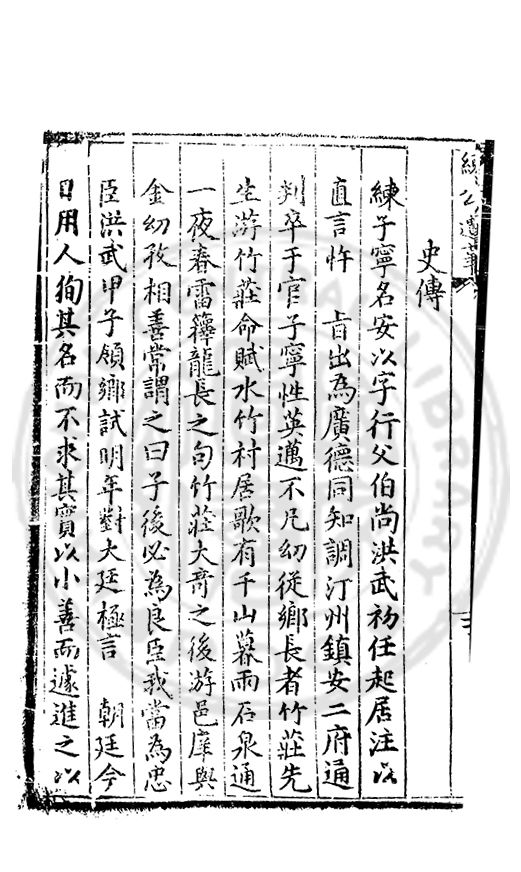 史傳
練子寧名安以字行父伯尚洪武初任起居注以
直言忤 旨出為廣德同知調汀州鎮安二府通
判卒于官子寧性英邁不凡幼從鄉長者竹莊先
生游竹莊命賦水竹村居歌有千山暮雨石泉通
一夜春雷籜龍長之句竹莊大奇之後游邑庠與
金幼孜相善常謂之曰子後必為良臣我當為忠
臣洪武甲子領鄉試明年對大廷極言 朝廷今
日用人狥其名而不求其實以小善而遽進之以